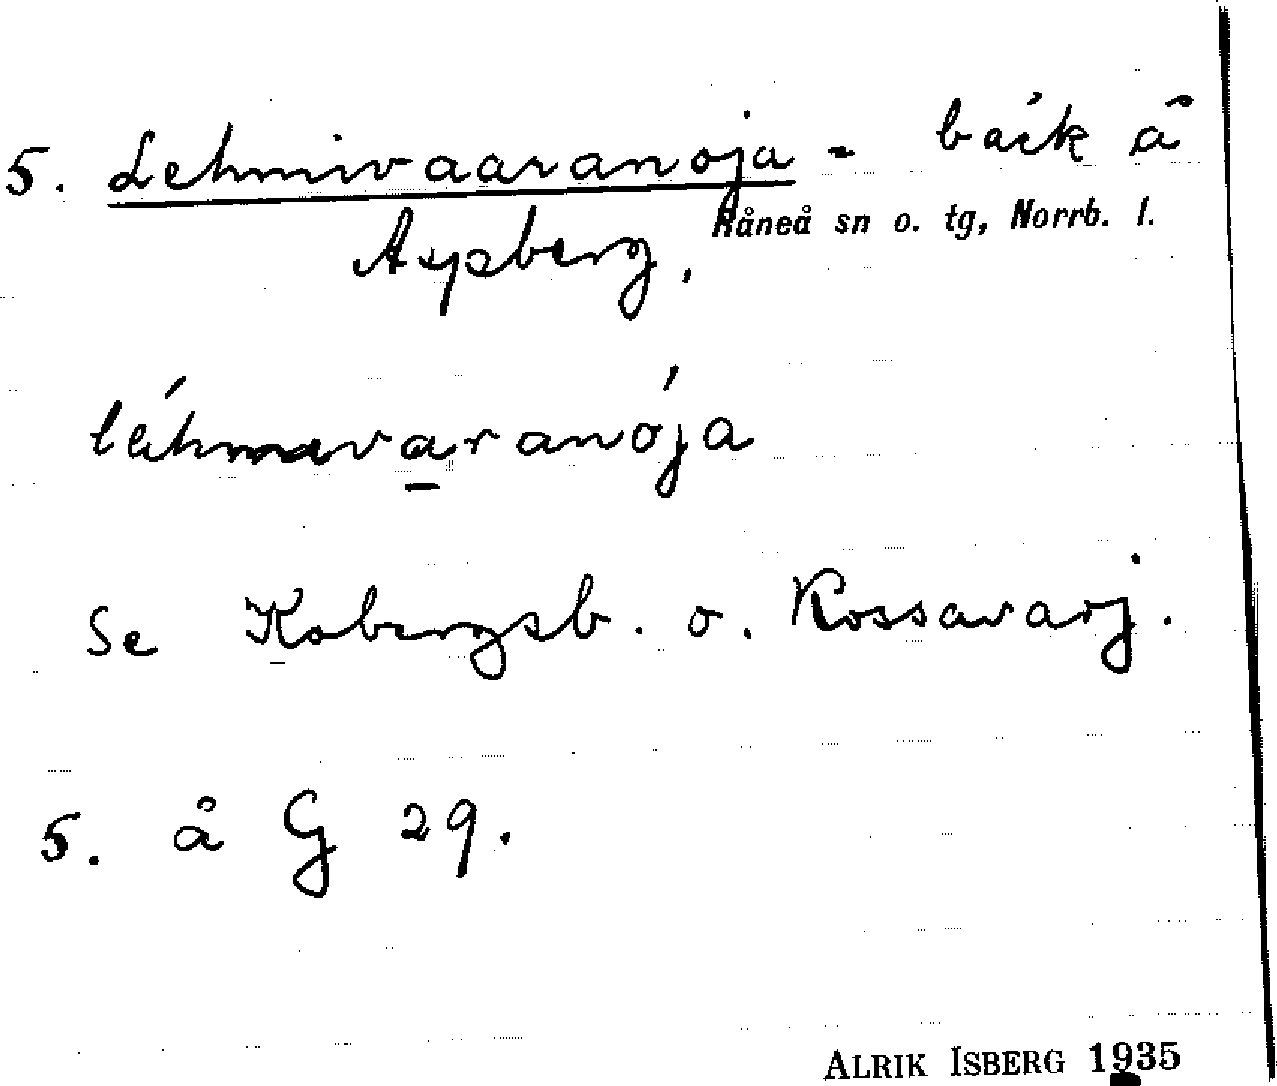 5. Lehmivaaranoja - bäck å
Råneå sn o. tg, Norrb. l.
Aypberg.
léhmavaranója
Se Kobergsb. o. Kossavarj.
5. å G 29.
ALRIK ISBERG 1935